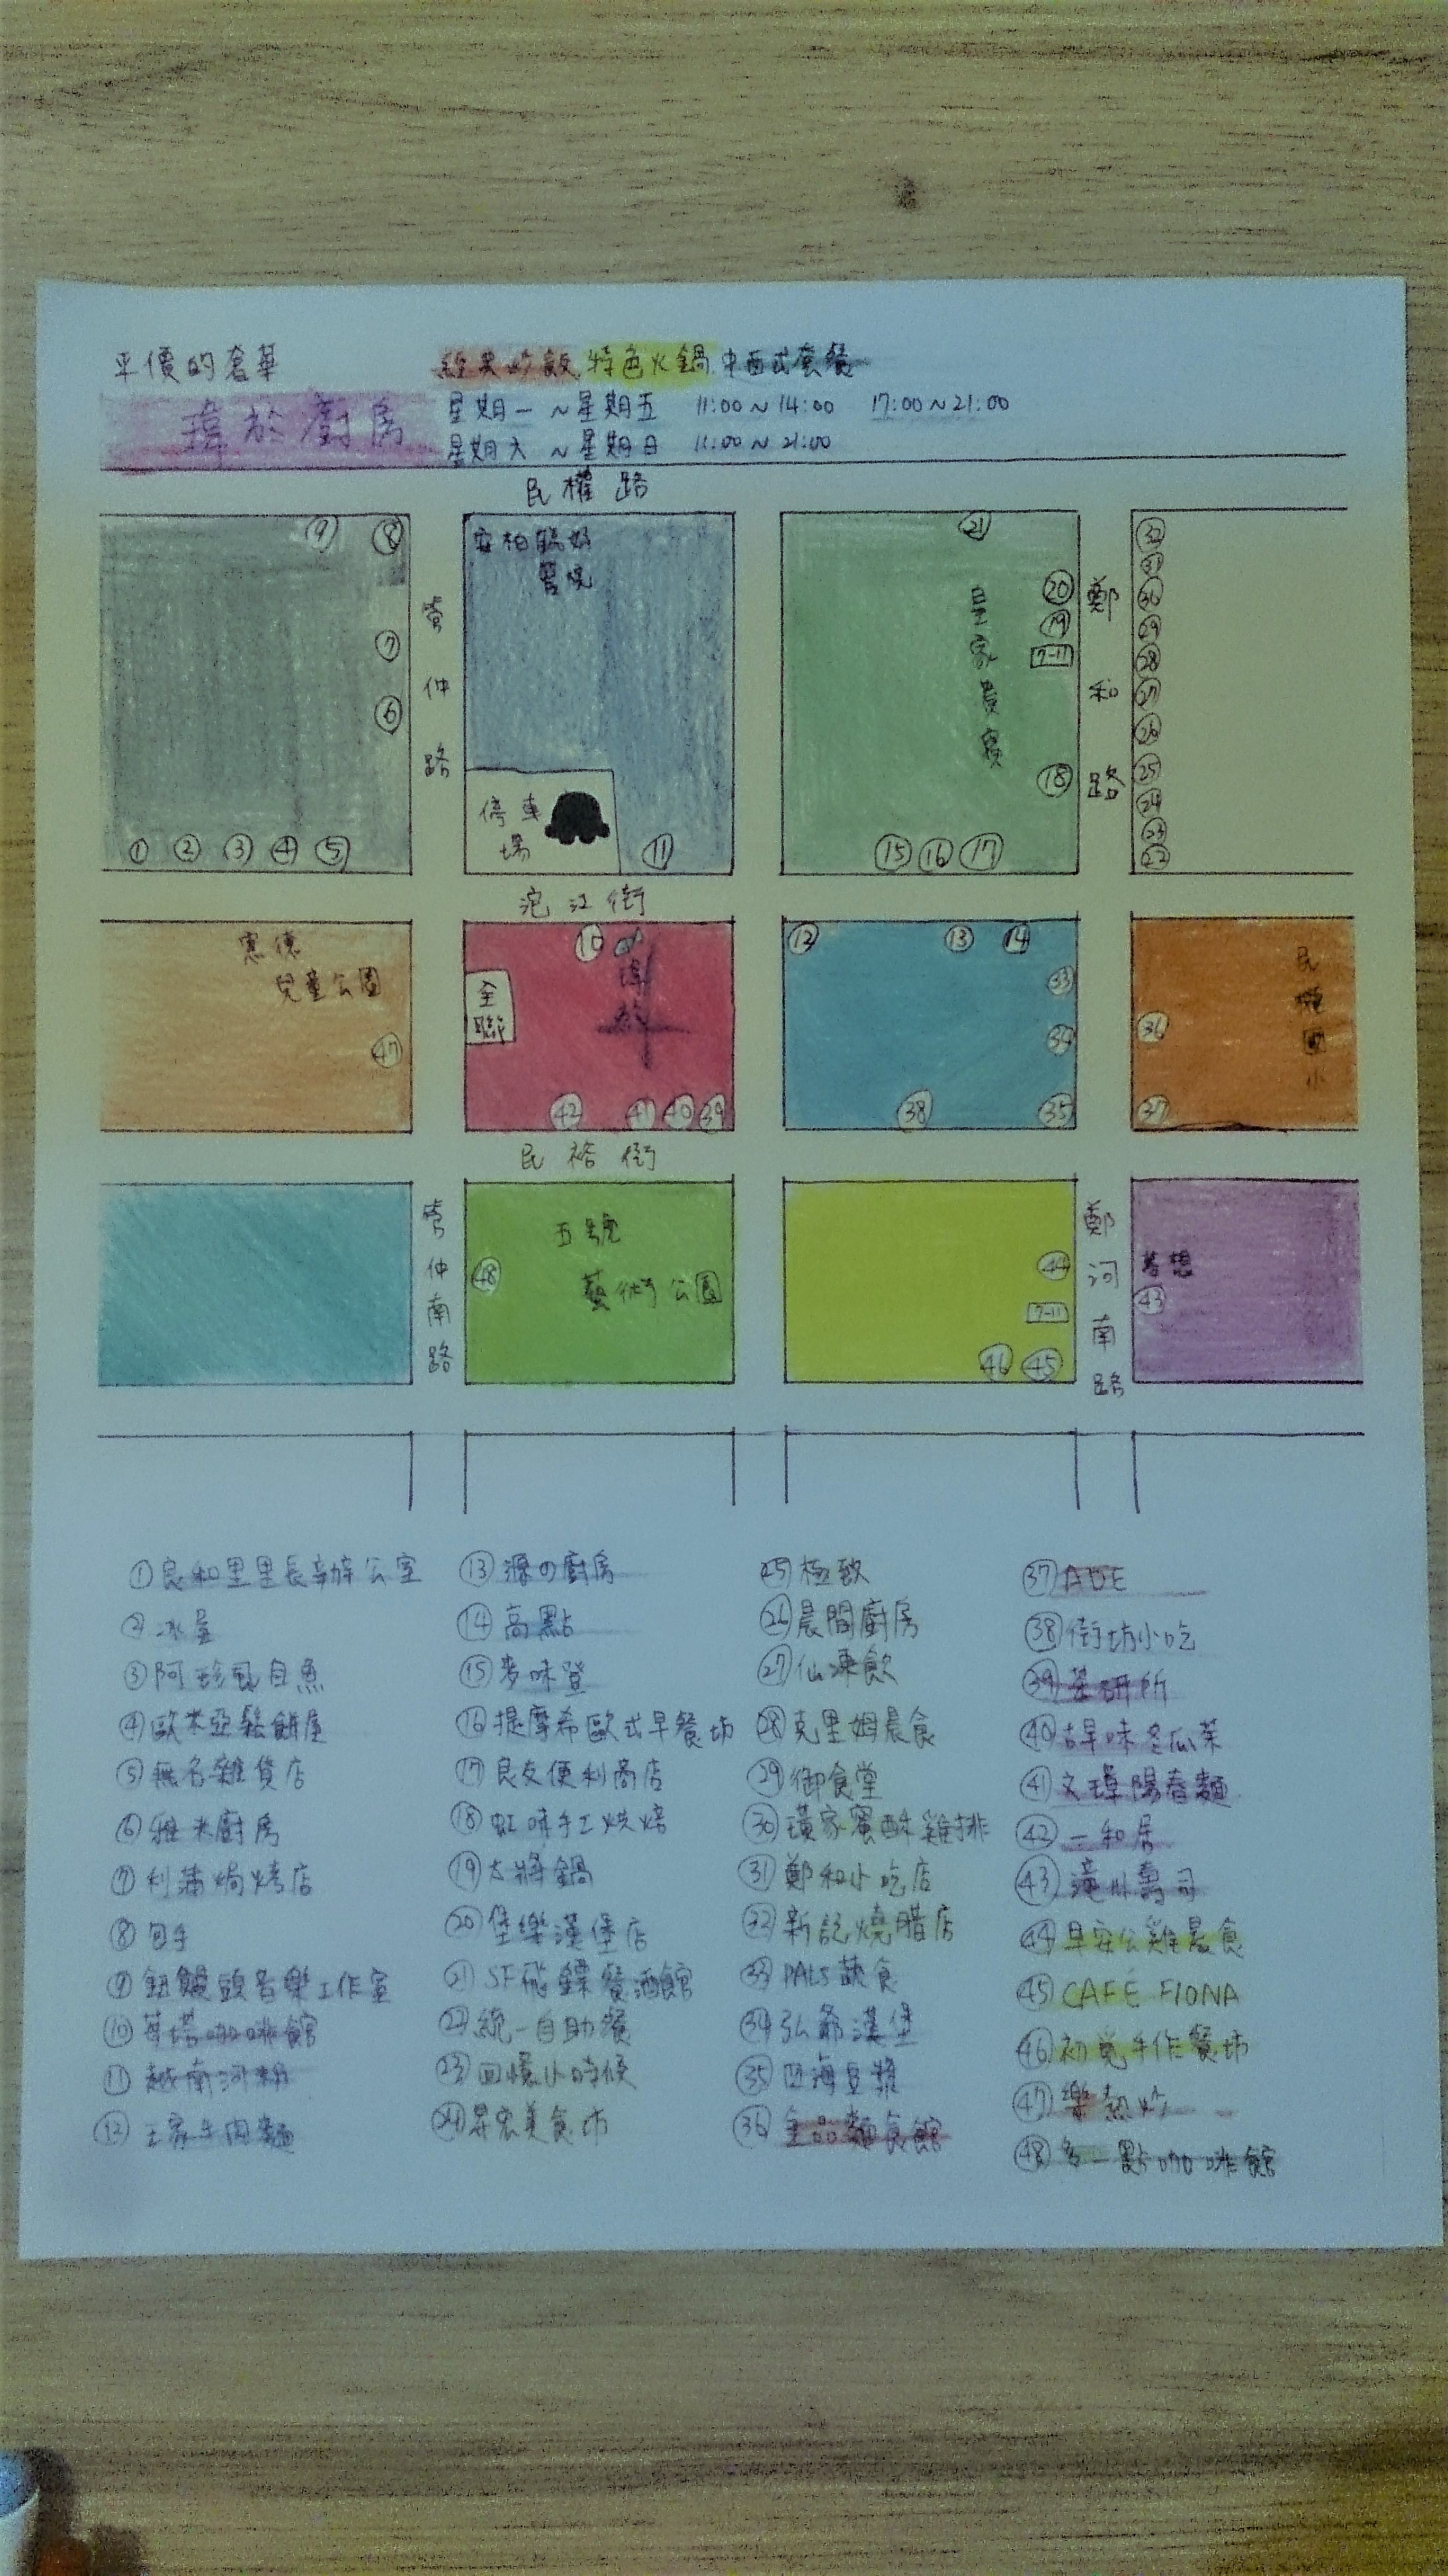 平價的奢華
經典炒飯 特色火鍋 中西式套餐
瑋於廚房
星期一 ~ 星期五 11:00~14:00 17:00~21:00
星期六 ~ 星期日 11:00~21:00
民權路
⑨ ⑧ ⑦ ⑥
① ② ③ ④ ⑤
管仲路
安柏
停車場
⑪
㉑
皇家貴賓
⑳ ⑲ 7-11 ⑱
⑮ ⑯ ⑰
鄭和路
㉜ ㉛ ㉙ ㉘ ㉗ ㉖ ㉕ ㉔ ㉓ ㉒
沱江街
憲德
兒童公園
㊼
⑩
全聯
瑋於
㊷ ㊶ ㊵ ㊴
⑫ ⑬ ⑭
㉝ ㉞ ㉟
㊳
民權國小
㊱
㊲
民裕街
管仲南路
五號
藝術公園
㊽
㊹
7-11
㊻ ㊺
鄭河南路
㊸
①良和里里長辦公室
②冰屋
③阿珍虱目魚
④歐米亞鬆餅屋
⑤無名雜貨店
⑥雅米廚房
⑦利蒲焗烤店
⑧
⑨鈕饅頭音樂工作室
⑩咖啡館
⑪越南河粉
⑫王家牛肉麵
⑬源の廚房
⑭高點
⑮麥味登
⑯提摩希歐式早餐坊
⑰良友便利商店
⑱虹味手工烘焙
⑲大將鍋
⑳堡樂漢堡店
㉑SF飛鏢餐酒館
㉒統一自助餐
㉓回憶小時候
㉔昇宏美食坊
㉕極致
㉖晨間廚房
㉗仙凍飲
㉘克里姆晨食
㉙御食堂
㉚璜家蜜酥雞排
㉛鄭和小吃店
㉜新記燒腊店
㉝PALS蔬食
㉞弘爺漢堡
㉟四海豆漿
㊱皇品麵食館
㊲ADE
㊳街坊小吃
㊴茶研所
㊵古早味冬瓜茶
㊶文瑋陽春麵
㊷一和居
㊸壽司
㊹早安公雞晨食
㊺CAFE FIONA
㊻初覓手作餐坊
㊼樂熱炒
㊽多一點咖啡館